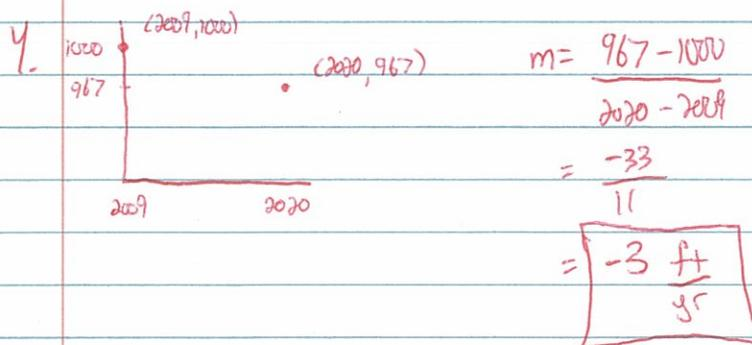 4.
(2009, 1000)
1000
967
(2020, 967)
2009 2020
m = 967 - 1000
2020 - 2009
= -33
11
= -3 ft
yr